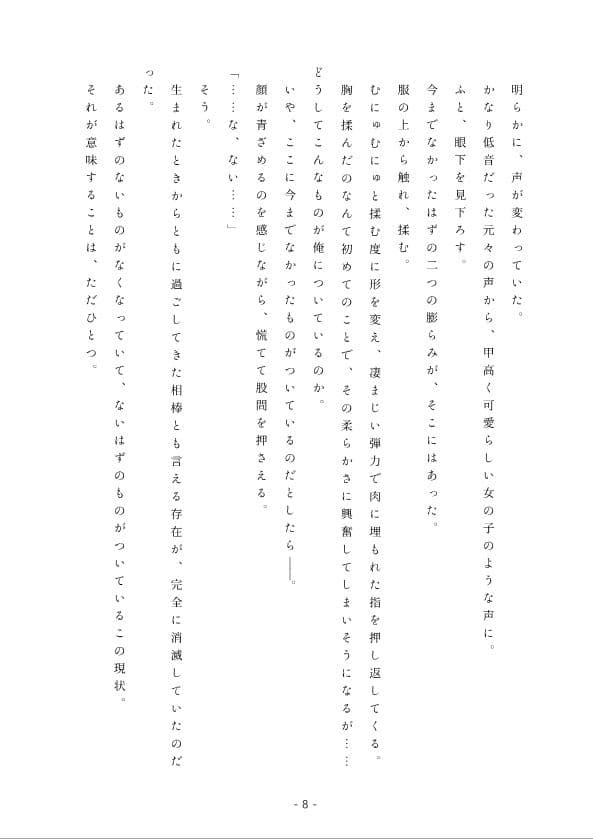 明らかに、声が変わっていた。
かなり低音だった元々の声から、甲高く可愛らしい女の子のような声に。
ふと、眼下を見下ろす。
今までなかったはずの二つの膨らみが、そこにはあった。
服の上から触れ、揉む。
むにゅむにゅと揉む度に形を変え、凄まじい弾力で肉に埋もれた指を押し返してくる。
胸を揉んだのなんて初めてのことで、その柔らかさに興奮してしまいそうになるが……
どうしてこんなものが俺についているのか。
いや、ここに今までなかったものがついているのだとしたら――。
顔が青ざめるのを感じながら、慌てて股間を押さえる。
「……な、ない……」
そう。
生まれたときからともに過ごしてきた相棒とも言える存在が、完全に消滅していたのだ
った。
あるはずのないものがなくなっていて、ないはずのものがついているこの現状。
それが意味することは、ただひとつ。
- 8 -